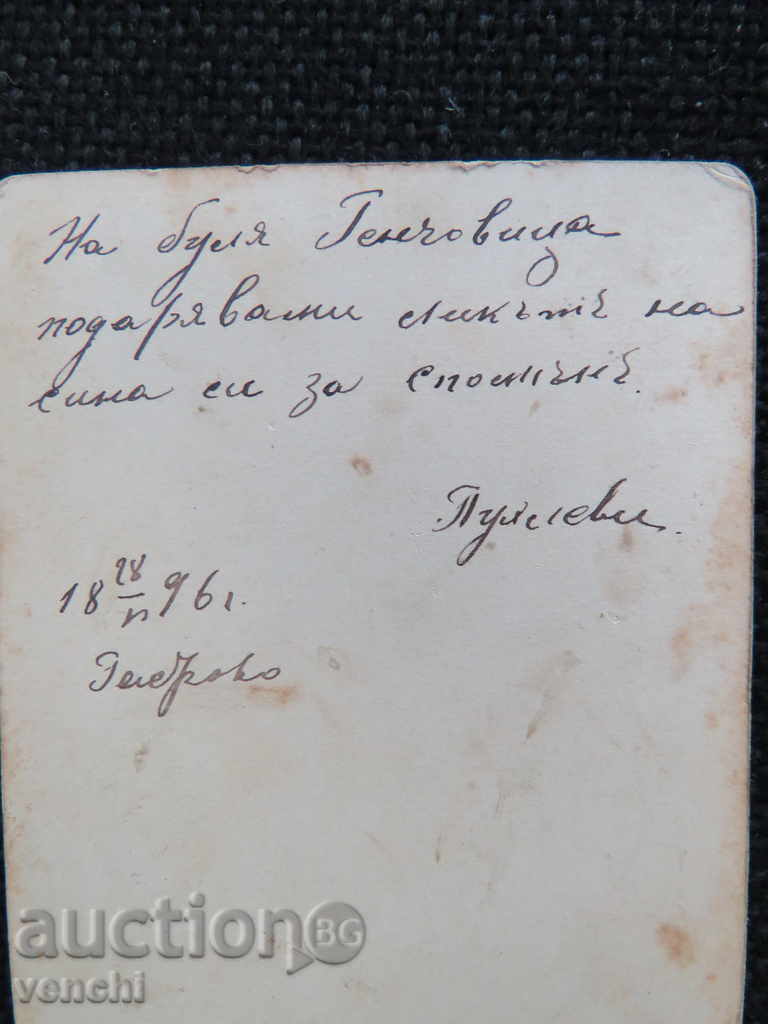 На буля Генчовица
подарявами ликътъ на
сина си за споменъ.
Пулиеви.
18 28/VI 96 г.
Габрово
auctionBG
venchi